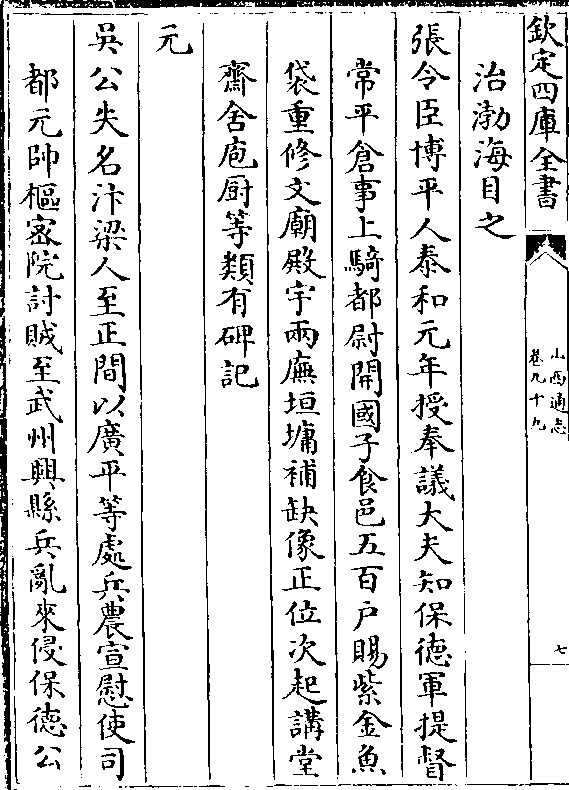 欽定四庫全書
山西通志
卷九十九
七
治渤海目之
張令臣博平人泰和元年授奉議大夫知保德軍提督
常平倉事上騎都尉開國子食邑五百户賜紫金魚
袋重修文廟殿宇兩廡垣墉補缺像正位次起講堂
齋舍庖厨等類有碑記
元
吳公失名汴梁人至正間以廣平等處兵農宣慰使司
都元帥樞宻院討賊至武州興縣兵亂來侵保德公